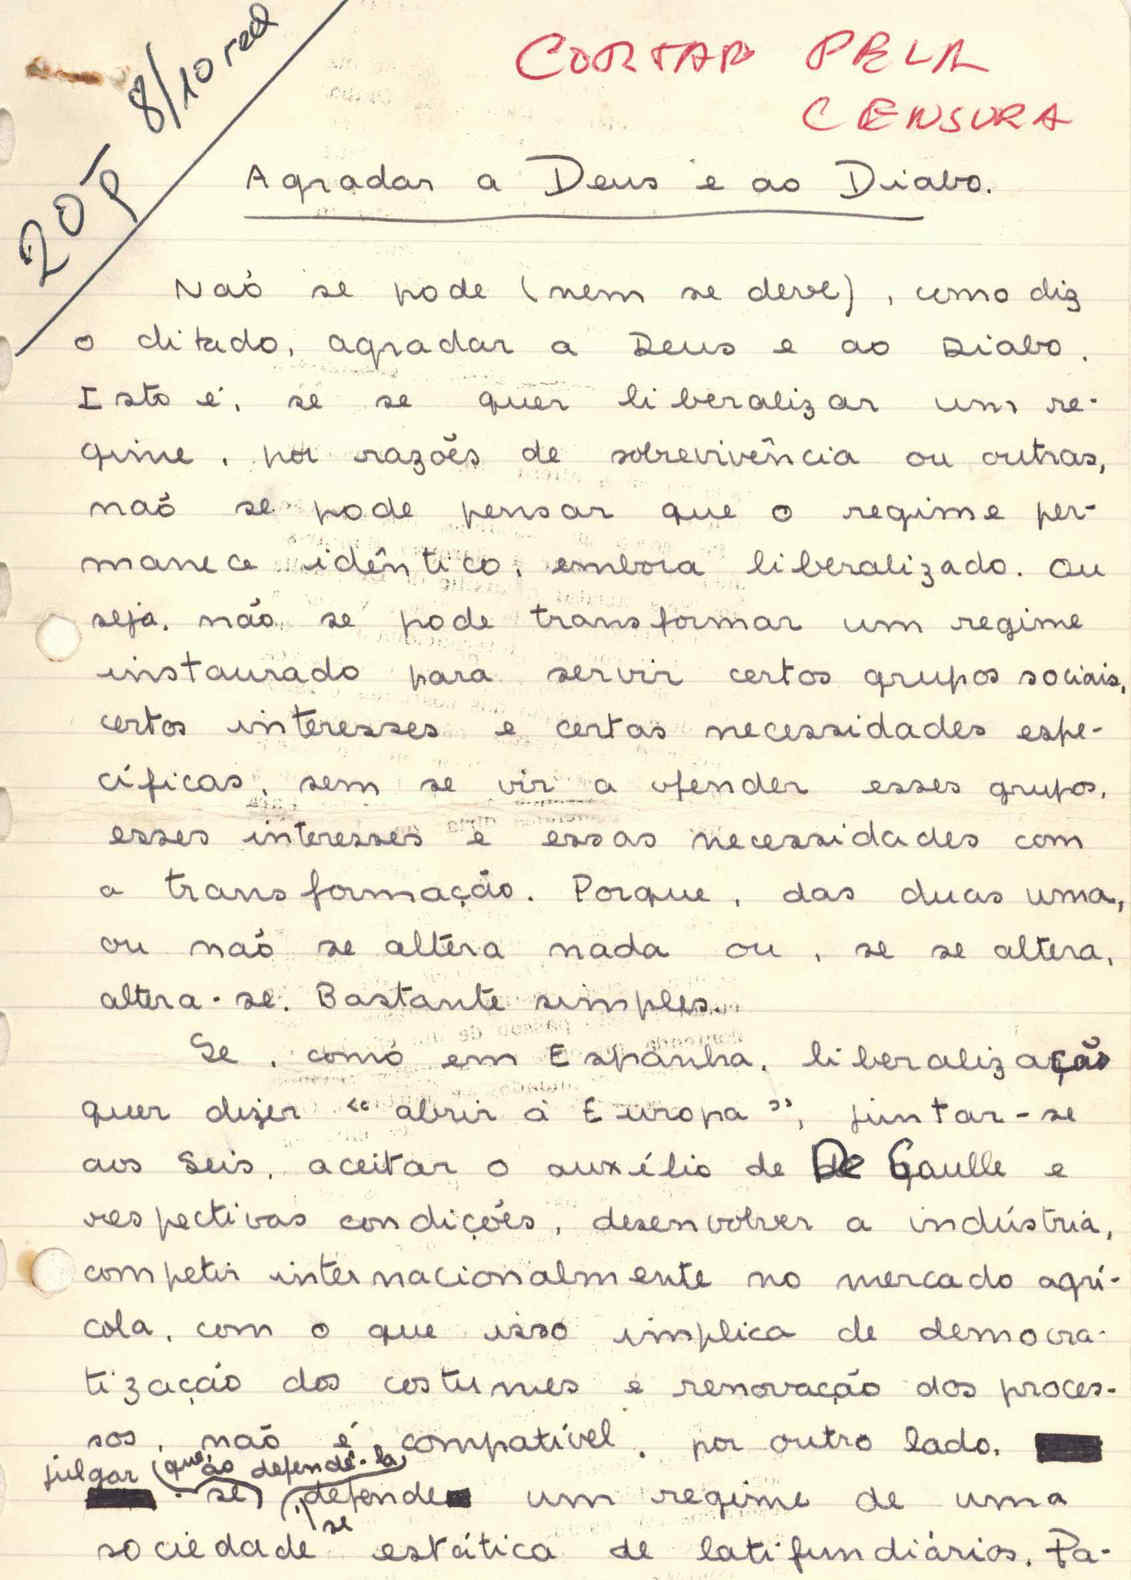 20 p 8/10 red
CORTAR PELA
CENSURA
Agradar a Deus e ao Diabo.
Não se pode (nem se deve), como diz
o ditado, agradar a Deus e ao Diabo.
Isto é, se se quer liberalizar um re-
gime, por razões de sobrevivência ou outras,
não se pode pensar que o regime per-
manece idêntico, embora liberalizado. Ou
seja, não se pode transformar um regime
instaurado para servir certos grupos sociais,
certos interesses e certas necessidades espe-
cíficas, sem se vir a ofender esses grupos,
esses interesses e essas necessidades com
a transformação. Porque, das duas uma,
ou não se altera nada ou, se se altera,
altera-se. Bastante simples.
Se, como em Espanha, liberalização
quer dizer "abrir à Europa", juntar-se
aos Seis, aceitar o auxílio de De Gaulle e
respectivas condições, desenvolver a indústria,
competir internacionalmente no mercado agrí-
cola, com o que isso implica de democra-
tização dos costumes e renovação dos proces-
sos, não é compatível, por outro lado,
julgar (que ao defendê-la)
se, defende um regime de uma
se
sociedade estática de latifundiários. Pa-